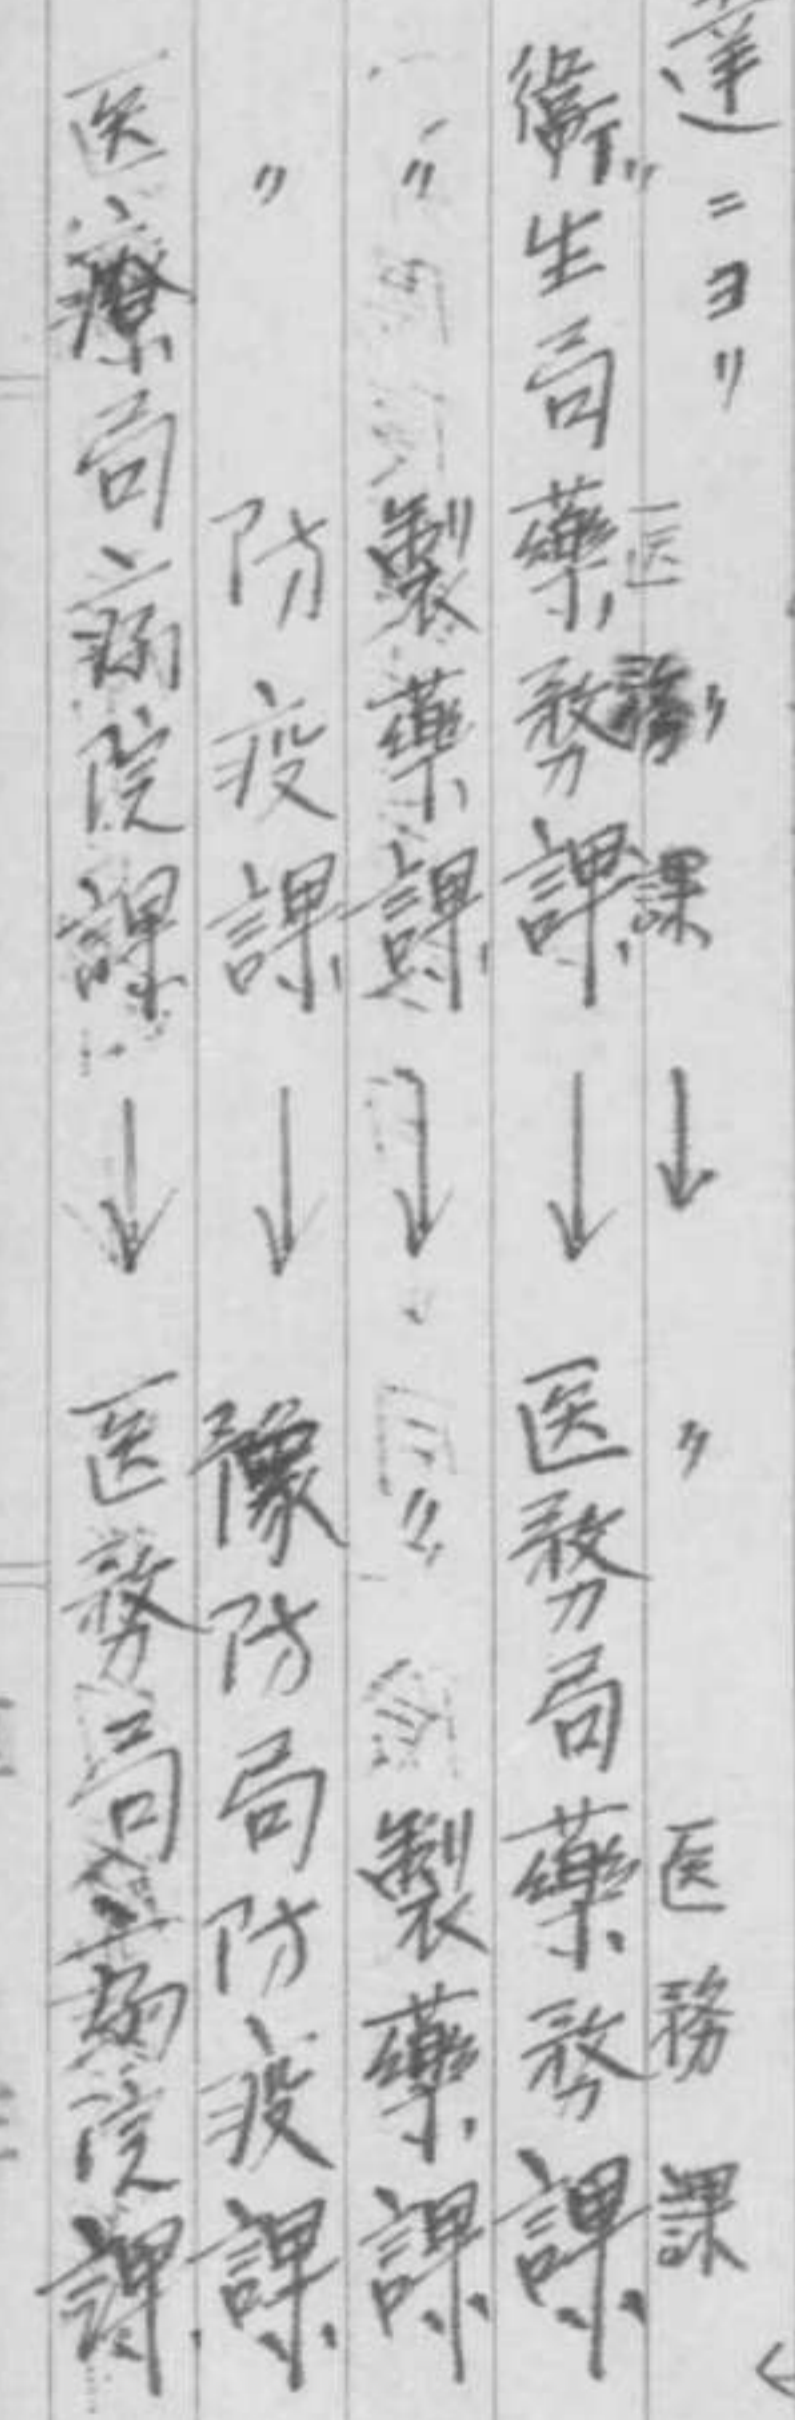 達ニヨリ
〃 医務課 → 〃 医務課
衛生局薬務課 → 医務局薬務課
〃 製薬課 → 〃 製薬課
〃 防疫課 → 豫防局防疫課
医療局病院課 → 医務局病院課